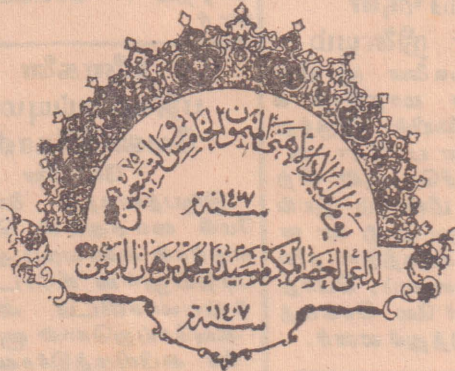 يوم الميلاد الاهنى الميمون الخامس والسبعين
سنة
لداعي العصر المكرم سيدنا محمد برهان الدين
سنة ١٤٠٧